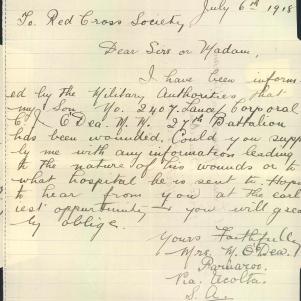 July 6th 1918
To Red Cross Society
Dear Sirs or Madam,
I have been inform
ed by the Military Authorities that
my Son No. 2407. Lance Corporal
O'Dea. M. W. 27th Battalion
has been wounded. Could you supp
ly me with any information leading
to the nature of his wounds or to
what hospital he is sent to. Hoping
to hear from you at the earl
iest oppurtunity & you will grea
ly oblige.
Yours Faithfully
Mrs. M. O'Dea.
Via.
S. A.